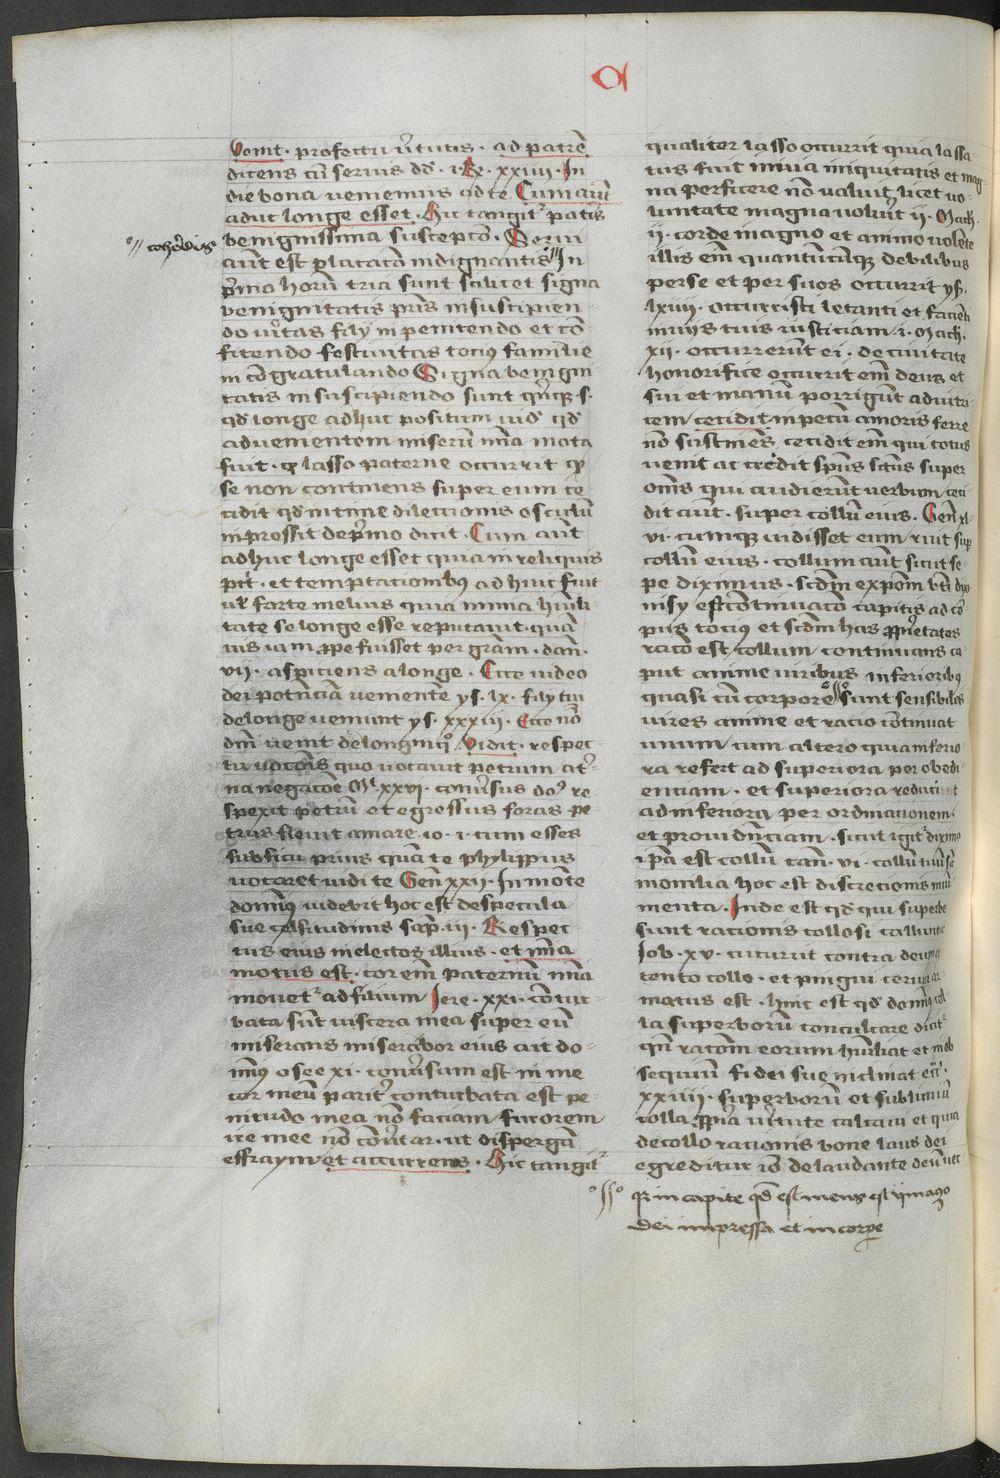 a
venit · profectu v̄tutis · ad patrē
dicens cū servis dd̄ · i · Re · xxiiii · In
die bona venimus ad te Cum aūt
aduc longe esset · Hic tangit᷑ pat̄s
benignissima suscepcō · Secūn
cohe᷑dis
aūt est placacō indignantis In
p̄mo horū tria sunt scilicet signa
benignitatis pr̄is in suscipien
do v̄itas filij in penitendo et cō
fitendo festivitas tocius familie
in cō gratulando Signa benigni
tatis in suscipiendo sunt q̄nq3 s·
qd̄ longe adhuc positum vid᷑ qd̄
ad venientem miserū mīa mota
fuit · q lasso paterne occurrit q
se non continens super eum ce
cidit qd̄ intime dilectionis osculū
inpressit de p̄mo dicit · Cum aūt
adhuc longe esset quia in reliquis
pct̄ · et temptacionibus ad huc fuit
ul̄ forte melius quia nimia humli
tate se longe esse reputavit · quā
vis iam ꝓpe fuisset per grām · dan̄
vii · aspiciens a longe · Ecce video
dei potn̄ciā venientē ys · lx · filij tui
de longe veniunt ys · xxxiii · Ecce nō
dn̄i venit de longinq° Vidit · respec
tu vocōis quo vocavit petrum at᷑
na negacōe Mt̄ xxvi · conv̄sus do9 re
spexit petrū et egressus foras pe
trus flevit amare · io · i · cum esses
sub ficu prius quā te phylippus
vocaret vidi te Gen̄ xxii · In mōte
domin9 videbit hoc est de specula
sue celsitudinis Sap̄ · iii · Respec
tus eius in electos illius · et mīa
motus est · cor em̄ paternū mīa
movet᷑ ad filium Jere · xxxi · cōtur
bata sūt viscera mea super eū
miserans miserebor eius ait do
min9 osee xi · conv̄sum est in me
cor meū parit̄ conturbata est pe
nitudo mea nō faciam furorem
ire mee nō cōv̄tar · ut dispergā
effraym et accurrens · Hic tangit᷑
qualiter lasso occurrit quia lassa
tus fuit in via iniquitatis et mag
na perficere nō valuit licet vo
luntate magna voluit ii · Mach ·
ii · corde magno et animo volēte
illis em̄ quantumcūq3 debilibus
per se et per suos occurrit ys ·
lxiiii · occurristi letanti et faciēti
in viis tuis iusticiam i · Mach ·
xii · occurrerūt ei · de civitate
honorifice occurrit em̄ deus et
sui et manū porrigūt ad virtu
tem cecidit impetū amoris ferre
nō sustinēs cecidit em̄ qui totus
venit ac cecidit sp̄us sctūs super
om̄s qui audierūt verbum ceci
dit aūt · super collū eius · Gen̄ xl
vi · cumq3 vidisset eum ruit sup
collū eius · collum aūt sicut se
pe diximus · scdm̄ expōm bt̄i dyo
nisy est cōtinuacō capitis ad cō
pus tocius et scdm̄ has ꝓprietates
racō est collum continuans ca
put anime viribus inferioribus
quasi cū corpore sunt sensibiles
vires anime et racio cōtinuat
unum cum altero quia inferio
ra refert ad superiora per obedi
enciam · et superiora reducit
ad inferiora per ordinationem
et providn̄ciam · sicut igit᷑ diximo
ip̄a est collū can̄ · vi · collū tuū s̄
monilia hoc est discretionis muni
menta · Inde est qd̄ qui superbe
sunt racionis collosi collunt᷑
Job · xv · cucurrit contra deum
tento collo · et pingui cervice
matus est · hinc est qd̄ domin9 col
la superborū conculcare dicit᷑
qn̄ racōm eorum humliat et in ob
sequiū fidei sue inclinat ecc̄i ·
xxiiii · superborū et sublimiū
colla ꝓpria v̄tute calcavi et quia
de collo racionis bone laus dei
egreditur iō de laudante deū vec
q in capite qd̄ est mens est ymago
dei impressa et in corpe